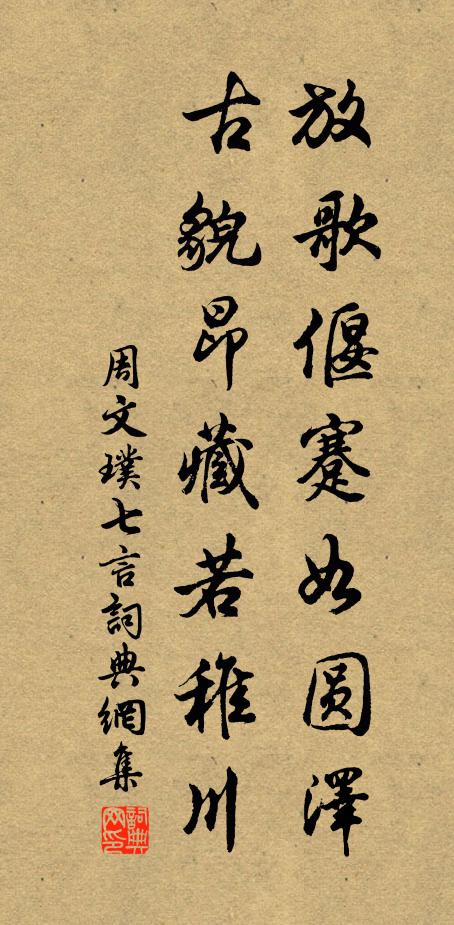 放歌偃蹇如圆澤
古貌昂藏若稚川
周文璞七言詞典網集
詞典网印